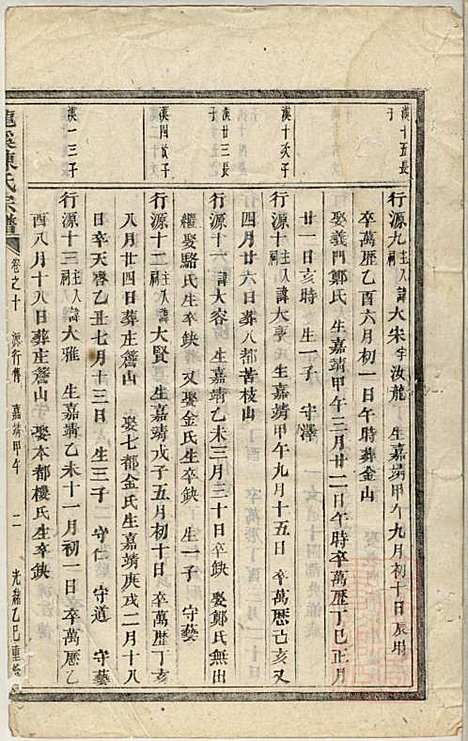 漢十五長子
行源九主入祠諱大宋字汝龍 生嘉靖甲午九月初十日辰時
卒萬歷乙酉六月初一日午時葬金山
娶義門鄭氏 生嘉靖甲午二月廿一日午時卒萬歷丁巳正月
廿一日亥時 生一子 守澤
漢十次子
行源十一主入祠諱大亨 生嘉靖甲午九月十五日 卒萬歷己亥又
四月廿六日葬八都苦枝山
漢廿三長子
行源十六主入祠諱大容 生嘉靖乙未三月三十日卒缺 娶鄭氏無出
繼娶駱氏生卒缺 又娶金氏生卒缺 生一子 守藝
漢四次子
行源十二主入祠諱大賢 生嘉靖戊子五月初十日 卒萬歷丁亥
八月廿四日葬庄鶩山 娶七都金氏生嘉靖庚戌二月十八
日辛天啓乙丑七月十三日 生三子 守仁 守道 守藝
漢一三子
行源十三主入祠諱大雅 生嘉靖乙未十一月初一日卒萬歷乙
酉八月十八日葬庄鶩山 娶本都樓氏生卒缺
龍溪陳氏宗譜 卷之十 源行傳 嘉靖甲午 二 光緒乙巳重修